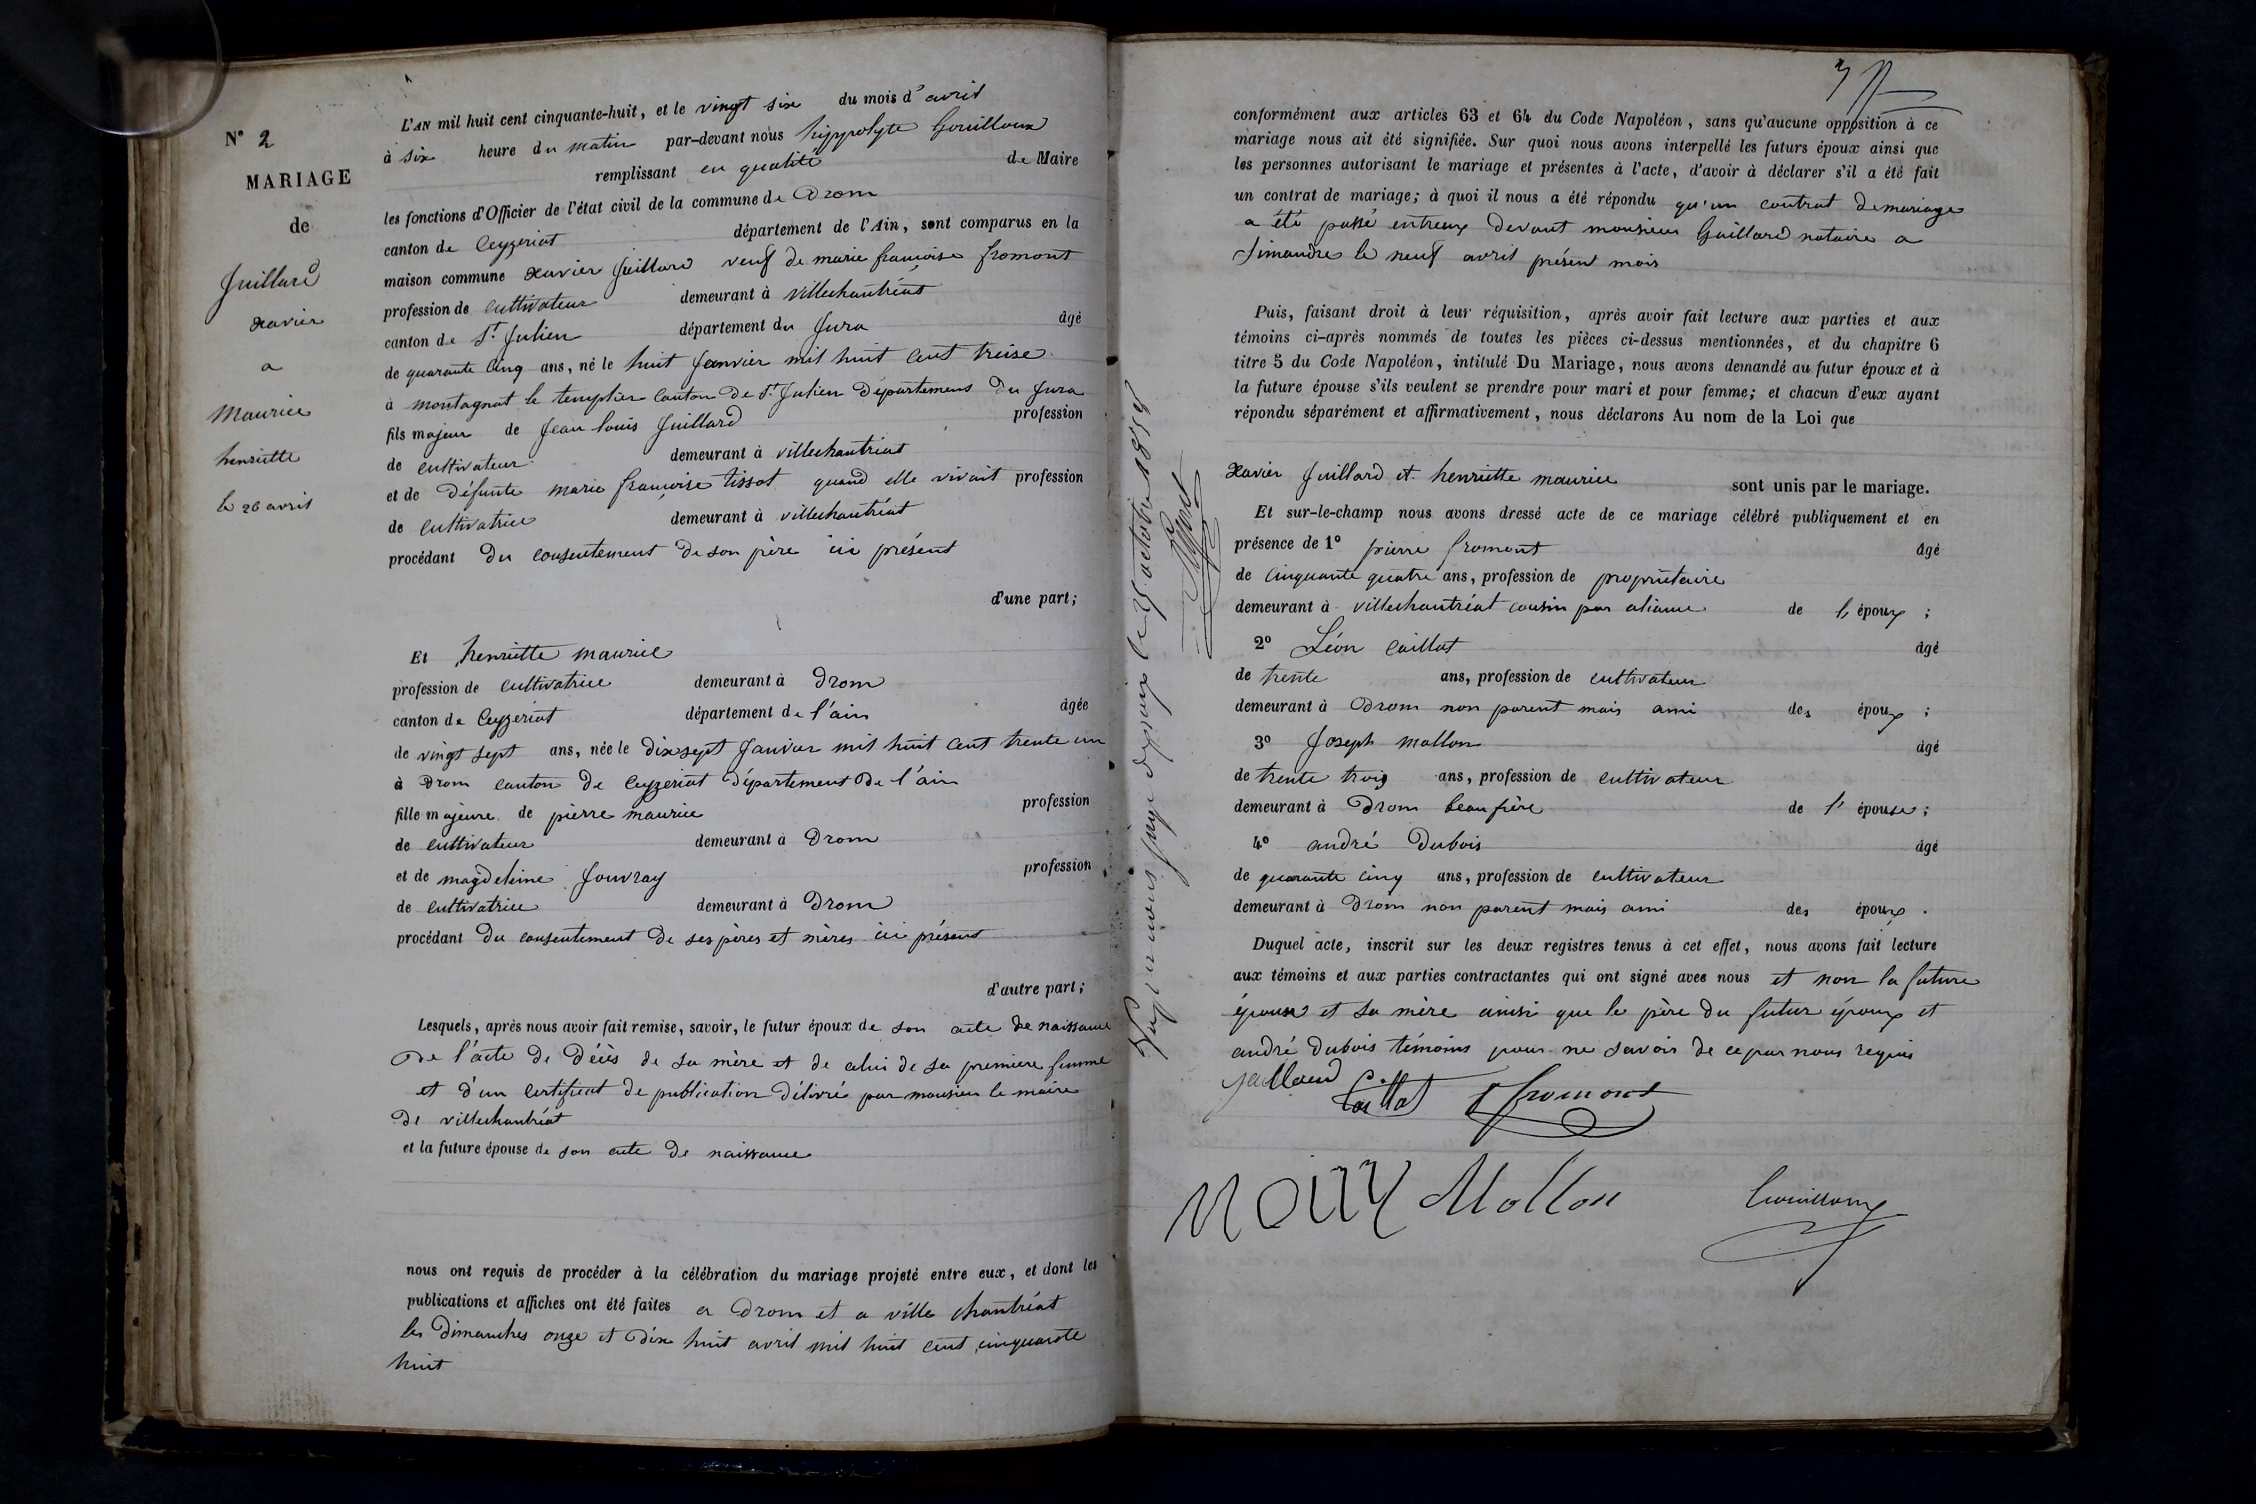 N° 2
MARIAGE
de
Juillard
xavier
a
maurice
henriette
le 26 avril
L'AN mil huit cent cinquante-huit, et le vingt six du mois d'avril
à six heure du matin par-devant nous hippolyte Gouilloux
remplissant en qualité de Maire
les fonctions d'Officier de l'état civil de la commune de Drom
canton de Ceyzeriat département de l'Ain, sont comparus en la
maison commune xavier Juillard veuf de marie françoise fromont
profession de cultivateur demeurant à villechantréat
canton de St. Julien département du Jura âgé
de quarante Cinq ans, né le huit Janvier mil huit Cent treise
à montagnat le templier Canton de St. Julien Département Du Jura
fils majeur de Jean louis Juillard profession
de cultivateur demeurant à villechantréat
et de Défunte marie françoise tissot quand elle vivait profession
de cultivatrice demeurant à villechantréat
procédant Du consentement De son père ici présent
d'une part;
Et henriette maurice
profession de cultivatrice demeurant à Drom
canton de Ceyzeriat département de l'ain âgée
de vingt sept ans, née le Dix sept Janvier mil huit Cent trente un
à Drom canton De Ceyzeriat Département De l'ain
fille majeure de pierre maurice profession
de cultivateur demeurant à Drom
et de magdeleine Jouvray profession
de cultivatrice demeurant à Drom
procédant Du consentement De ses pères et mères ici présent
d'autre part;
Lesquels, après nous avoir fait remise, savoir, le futur époux de son acte De naissance
De l'acte De Décès de sa mère et de celui de sa premiere femme
et d'un certificat de publication Délivré par monsieur le maire
De villechantréat
et la future épouse de son acte De naissance
nous ont requis de procéder à la célébration du mariage projeté entre eux, et dont les
publications et affiches ont été faites a Drom et a ville chantréat
les Dimanches onze et Dix huit avril mil huit cent cinquante
huit
conformément aux articles 63 et 64 du Code Napoléon, sans qu'aucune opposition à ce
mariage nous ait été signifiée. Sur quoi nous avons interpellé les futurs époux ainsi que
les personnes autorisant le mariage et présentes à l'acte, d'avoir à déclarer s'il a été fait
un contrat de mariage; à quoi il nous a été répondu qu'un contrat De mariage
a été passé entreux Devant monsieur Gaillard notaire a
Simandre le neuf avril présent mois
Puis, faisant droit à leur réquisition, après avoir fait lecture aux parties et aux
témoins ci-après nommés de toutes les pièces ci-dessus mentionnées, et du chapitre 6
titre 5 du Code Napoléon, intitulé Du Mariage, nous avons demandé au futur époux et à
la future épouse s'ils veulent se prendre pour mari et pour femme; et chacun d'eux ayant
répondu séparément et affirmativement, nous déclarons Au nom de la Loi que
xavier Juillard et henriette maurice sont unis par le mariage.
Et sur-le-champ nous avons dressé acte de ce mariage célébré publiquement et en
présence de 1° pierre fromont âgé
de Cinquante quatre ans, profession de propriétaire
demeurant à villechantréat cousin par aliance de l'époux ;
2° Léon Caillat âgé
de trente ans, profession de cultivateur
demeurant à Drom non parent mais ami des époux ;
3° Joseph mollon âgé
de trente trois ans, profession de cultivateur
demeurant à Drom beau frère de l'épouse ;
4° andré Dubois âgé
de quarante cinq ans, profession de cultivateur
demeurant à Drom non parent mais ami des époux .
Duquel acte, inscrit sur les deux registres tenus à cet effet, nous avons fait lecture
aux témoins et aux parties contractantes qui ont signé avec nous et non la future
épouse et sa mère ainsi que le père Du futur époux et
andré Dubois témoins pour ne savoir De ce par nous requis
Caillat fromont
Mollon Gouilloux